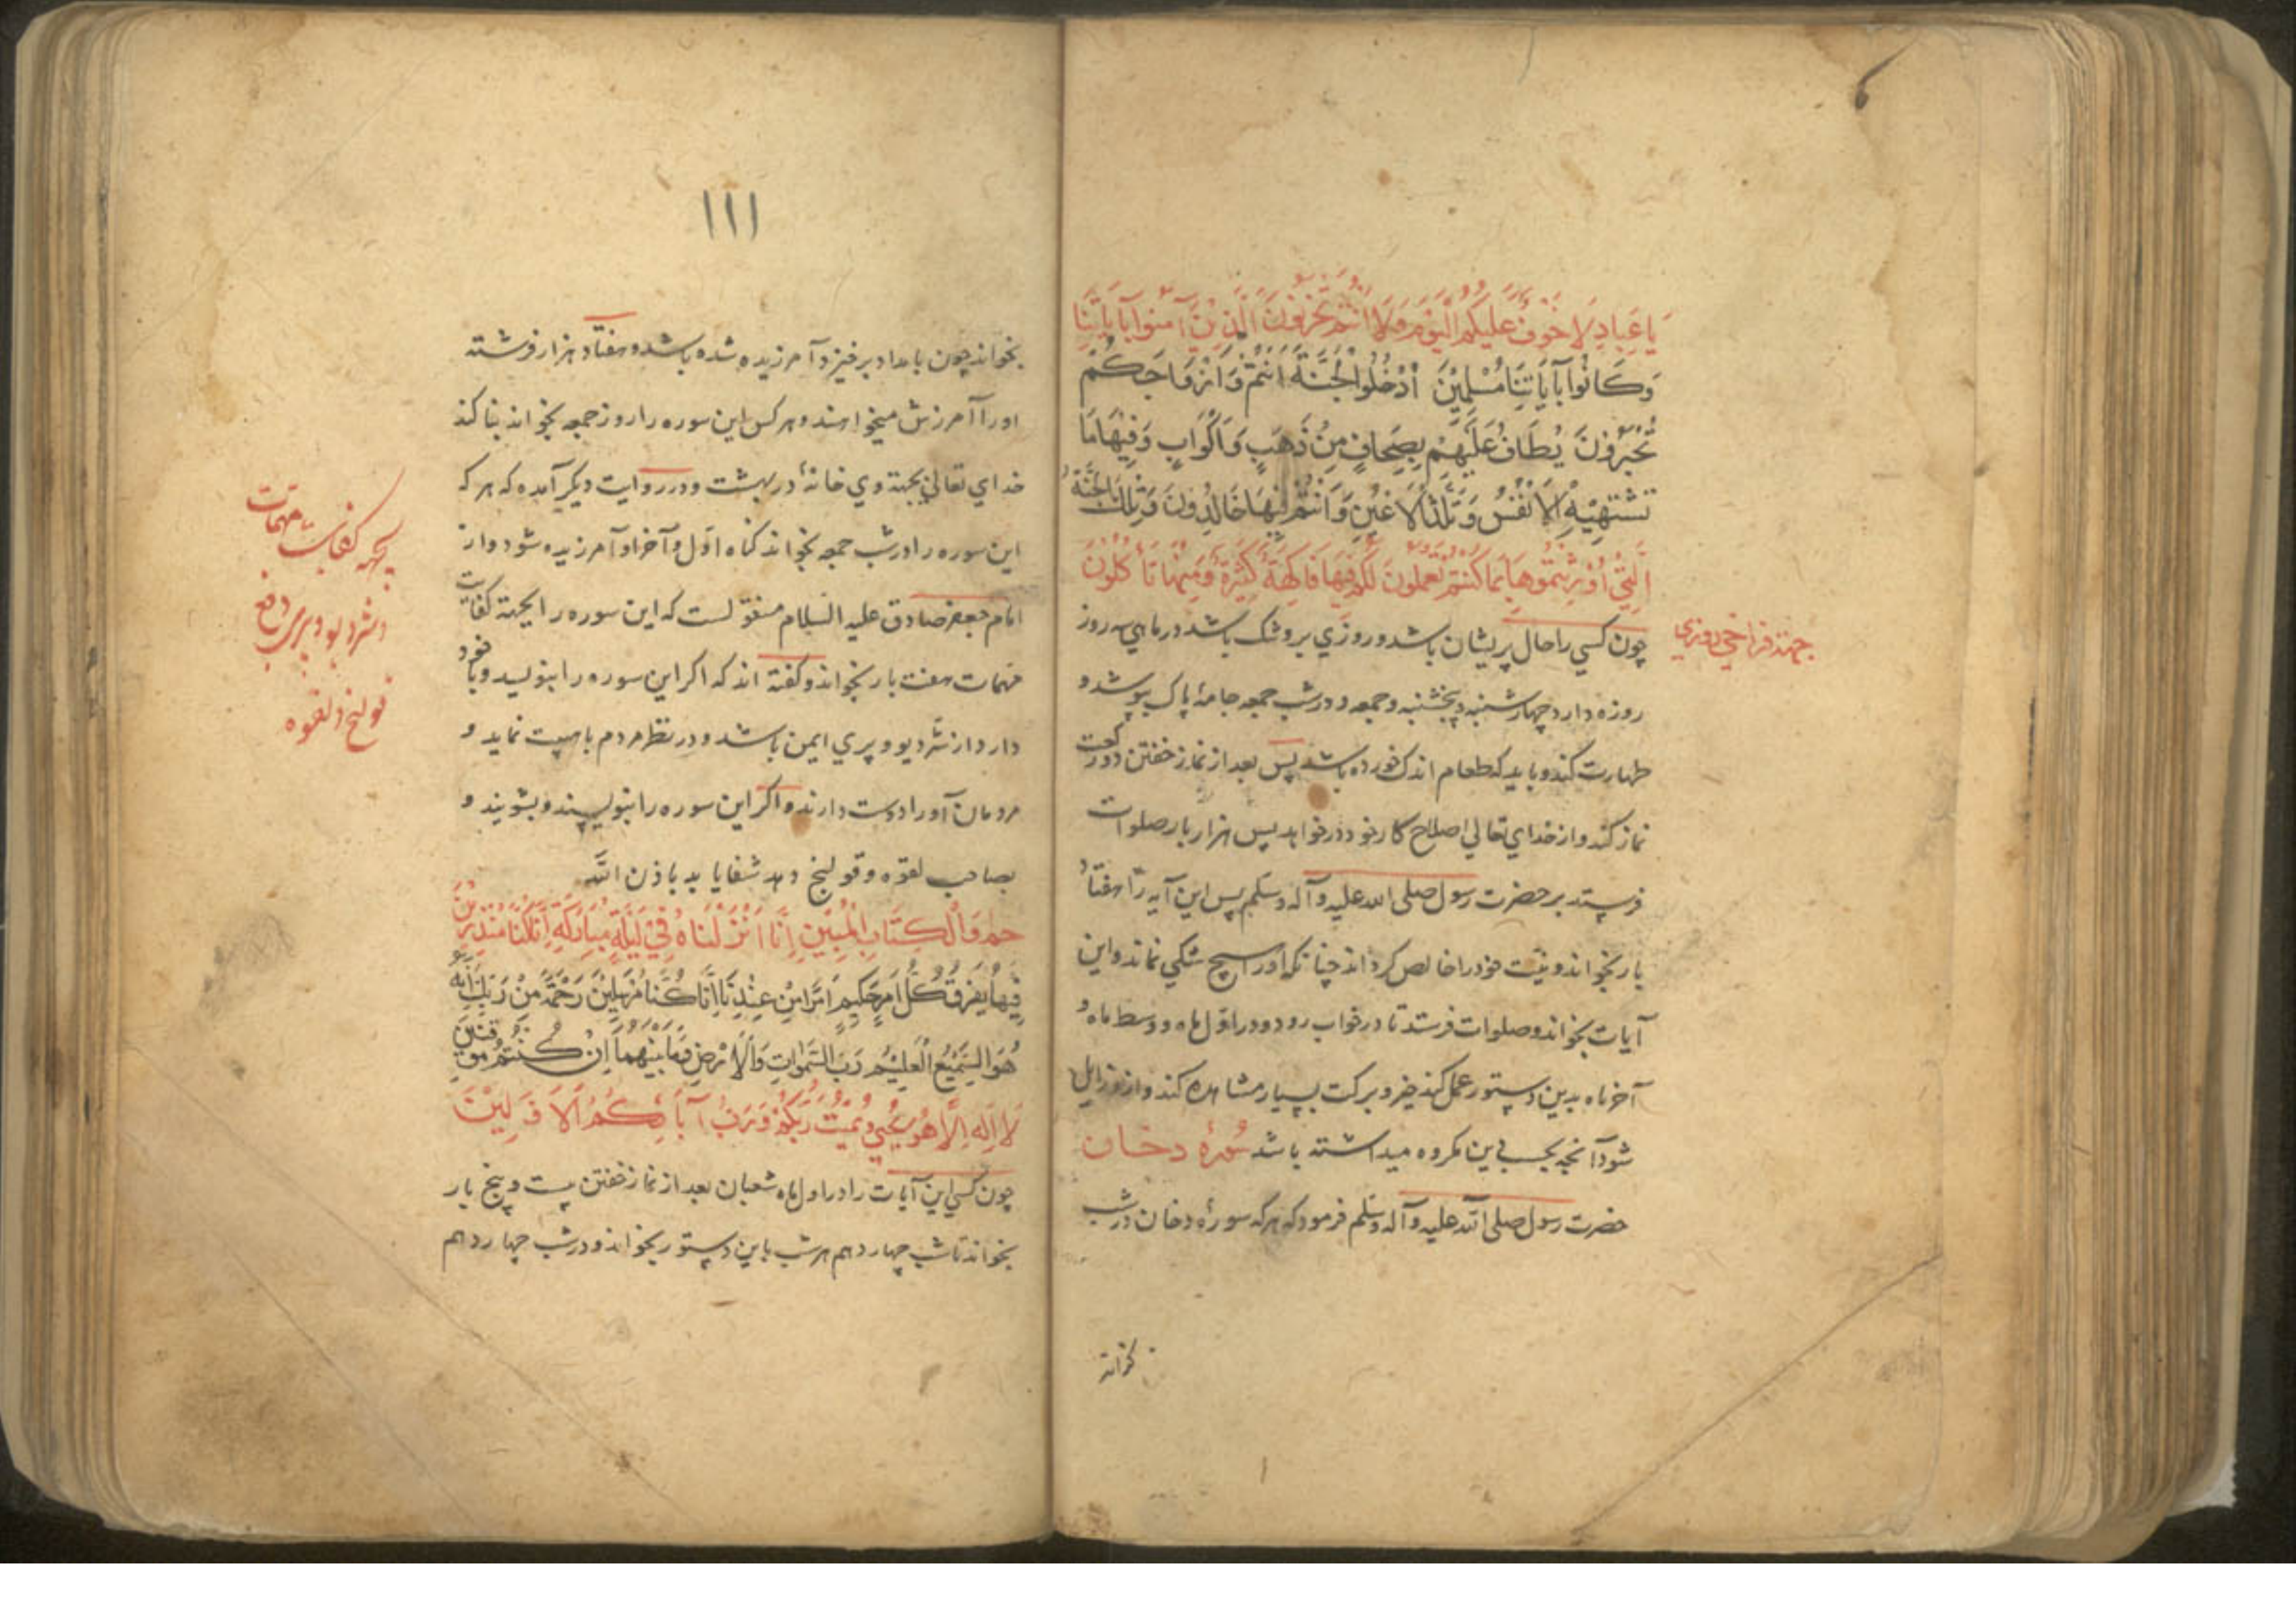 يَا عِبَادِ لَا خَوْفٌ عَلَيْكُمُ الْيَوْمَ وَلَا أَنْتُمْ تَحْزَنُونَ الَّذِينَ آمَنُوا بِآيَاتِنَا
وَكَانُوا بِآيَاتِنَا مُسْلِمِينَ أُدْخُلُوا الْجَنَّةَ أَنْتُمْ وَأَزْوَاجُكُمْ
تُحْبَرُونَ يُطَافُ عَلَيْهِمْ بِصِحَافٍ مِنْ ذَهَبٍ وَأَكْوَابٍ وَفِيهَا مَا
تَشْتَهِيهِ الْأَنْفُسُ وَتَلَذُّ الْأَعْيُنُ وَأَنْتُمْ فِيهَا خَالِدُونَ وَتِلْكَ الْجَنَّةُ
الَّتِي أُورِثْتُمُوهَا بِمَا كُنْتُمْ تَعْمَلُونَ لَكُمْ فِيهَا فَاكِهَةٌ كَثِيرَةٌ وَمِنْهَا تَأْكُلُونَ
جهتة فراخي روزي
چون كسي را حال پريشان باشد و روزي برو تنك باشد در ماهي سه روز
روزه دارد چهارشنبه و پنجشنبه و جمعه و در شب جمعه جامهٔ پاك بپوشد و
طهارت كند و بايد كه طعام اندك خورده باشد پس بعد از نماز خفتن دو ركعت
نماز كند و از خداي تعالي اصلاح كار خود در خواهد پس هزار بار صلوات
فرستد بر حضرت رسول صلى الله عليه وآله وسلم پس اين آيه را هفتاد
بار بخواند و نيت خود را خالص كرداند چنانكه او را هيچ شكي نماند و اين
آيات بخواند و صلوات فرستد تا در خواب رود و در اول ماه و وسط ماه و
آخر ماه بدين دستور عمل كند خير و بركت بسيار مشاهده كند و ازو زايل
شود آنچه بحسب اين مكروه ميداشته باشد سورهٔ دخان
حضرت رسول صلى الله عليه وآله وسلم فرمود كه هر كه سورهٔ دخان در شب
بخواند
١١١
بخواند چون بامداد برخيزد آمرزيده شده باشد و هفتاد هزار فرشته
اورا آمرزش ميخواهند و هر كس اين سوره را روز جمعه بخواند بنا كند
خداي تعالي بجهتة وي خانهٔ در بهشت و در روايت ديكر آمده كه هر كه
اين سوره را در شب جمعه بخواند كناه اول و آخر او آمرزيده شود و از
امام جعفر صادق عليه السلام منقولست كه اين سوره را بجهتة كفايت
مهمات هفت بار بخواند و كفته اند كه اكر اين سوره را بنويسد و با خود
دارد از شر ديو و پري ايمن باشد و در نظر مردم با هيبت نمايد و
مردمان اورا دوست دارند و اكر اين سوره را بنويسند و بشويند و
بصاحب لقوه و قولنج دهد شفا يابد باذن الله
بجهة كفايت مهمات
و شر ديو و پري و دفع
قولنج و لقوه
حم وَالْكِتَابِ الْمُبِينِ إِنَّا أَنْزَلْنَاهُ فِي لَيْلَةٍ مُبَارَكَةٍ إِنَّا كُنَّا مُنْذِرِينَ
فِيهَا يُفْرَقُ كُلُّ أَمْرٍ حَكِيمٍ أَمْرًا مِنْ عِنْدِنَا إِنَّا كُنَّا مُرْسِلِينَ رَحْمَةً مِنْ رَبِّكَ إِنَّهُ
هُوَ السَّمِيعُ الْعَلِيمُ رَبِّ السَّمَوَاتِ وَالْأَرْضِ وَمَا بَيْنَهُمَا إِنْ كُنْتُمْ مُوقِنِينَ
لَا إِلَهَ إِلَّا هُوَ يُحْيِي وَيُمِيتُ رَبُّكُمْ وَرَبُّ آبَائِكُمُ الْأَوَّلِينَ
چون كسي اين آيات را در اول ماه شعبان بعد از نماز خفتن بيست و پنج بار
بخواند تا شب چهاردهم هر شب باين دستور بخواند و در شب چهاردهم